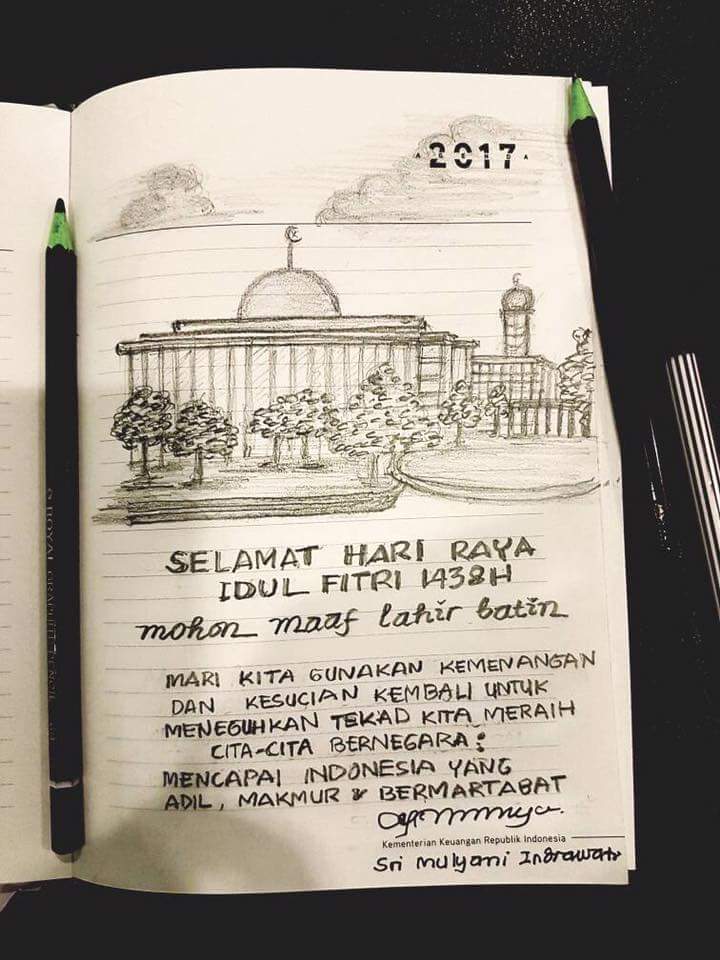 2017
AGENDA
SELAMAT HARI RAYA
IDUL FITRI 1438H
mohon maaf lahir batin
MARI KITA GUNAKAN KEMENANGAN
DAN KESUCIAN KEMBALI UNTUK
MENEGUHKAN TEKAD KITA MERAIH
CITA-CITA BERNEGARA:
MENCAPAI INDONESIA YANG
ADIL, MAKMUR & BERMARTABAT
Kementerian Keuangan Republik Indonesia
Sri Mulyani Indrawati